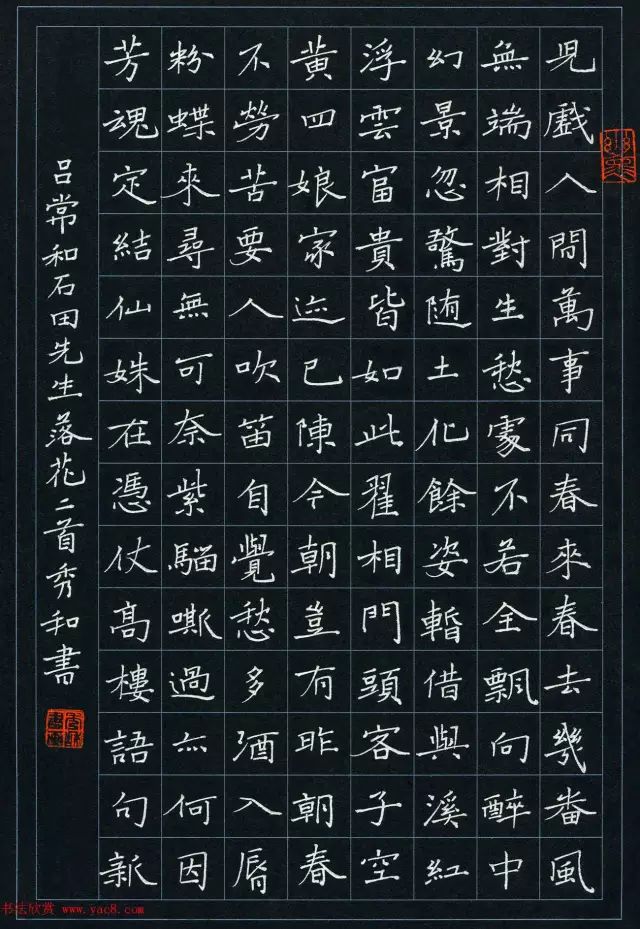 兒戲人間萬事同春來春去幾番風
無端相對生愁處不若全飄向醉中
幻景忽驚随土化餘姿暫借與溪紅
浮雲富貴皆如此翟相門頭客子空
黄四娘家迹已陳今朝豈有昨朝春
不勞苦要人吹笛自覺愁多酒入脣
粉蝶來尋無可奈紫騮嘶過亦何因
芳魂定結仙姝在憑仗高樓語句新
吕常和石田先生落花二首秀和書
书法欣赏 www.yac8.com